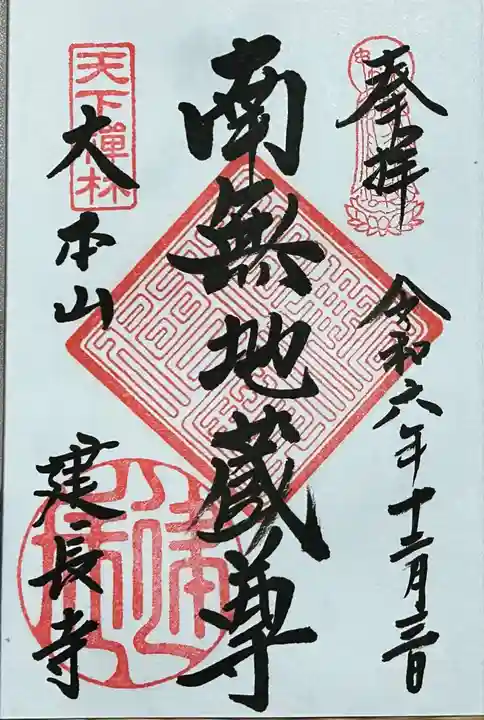 奉拝
令和六年十二月三日
南無地蔵尊
天下禅林
大本山
建長寺